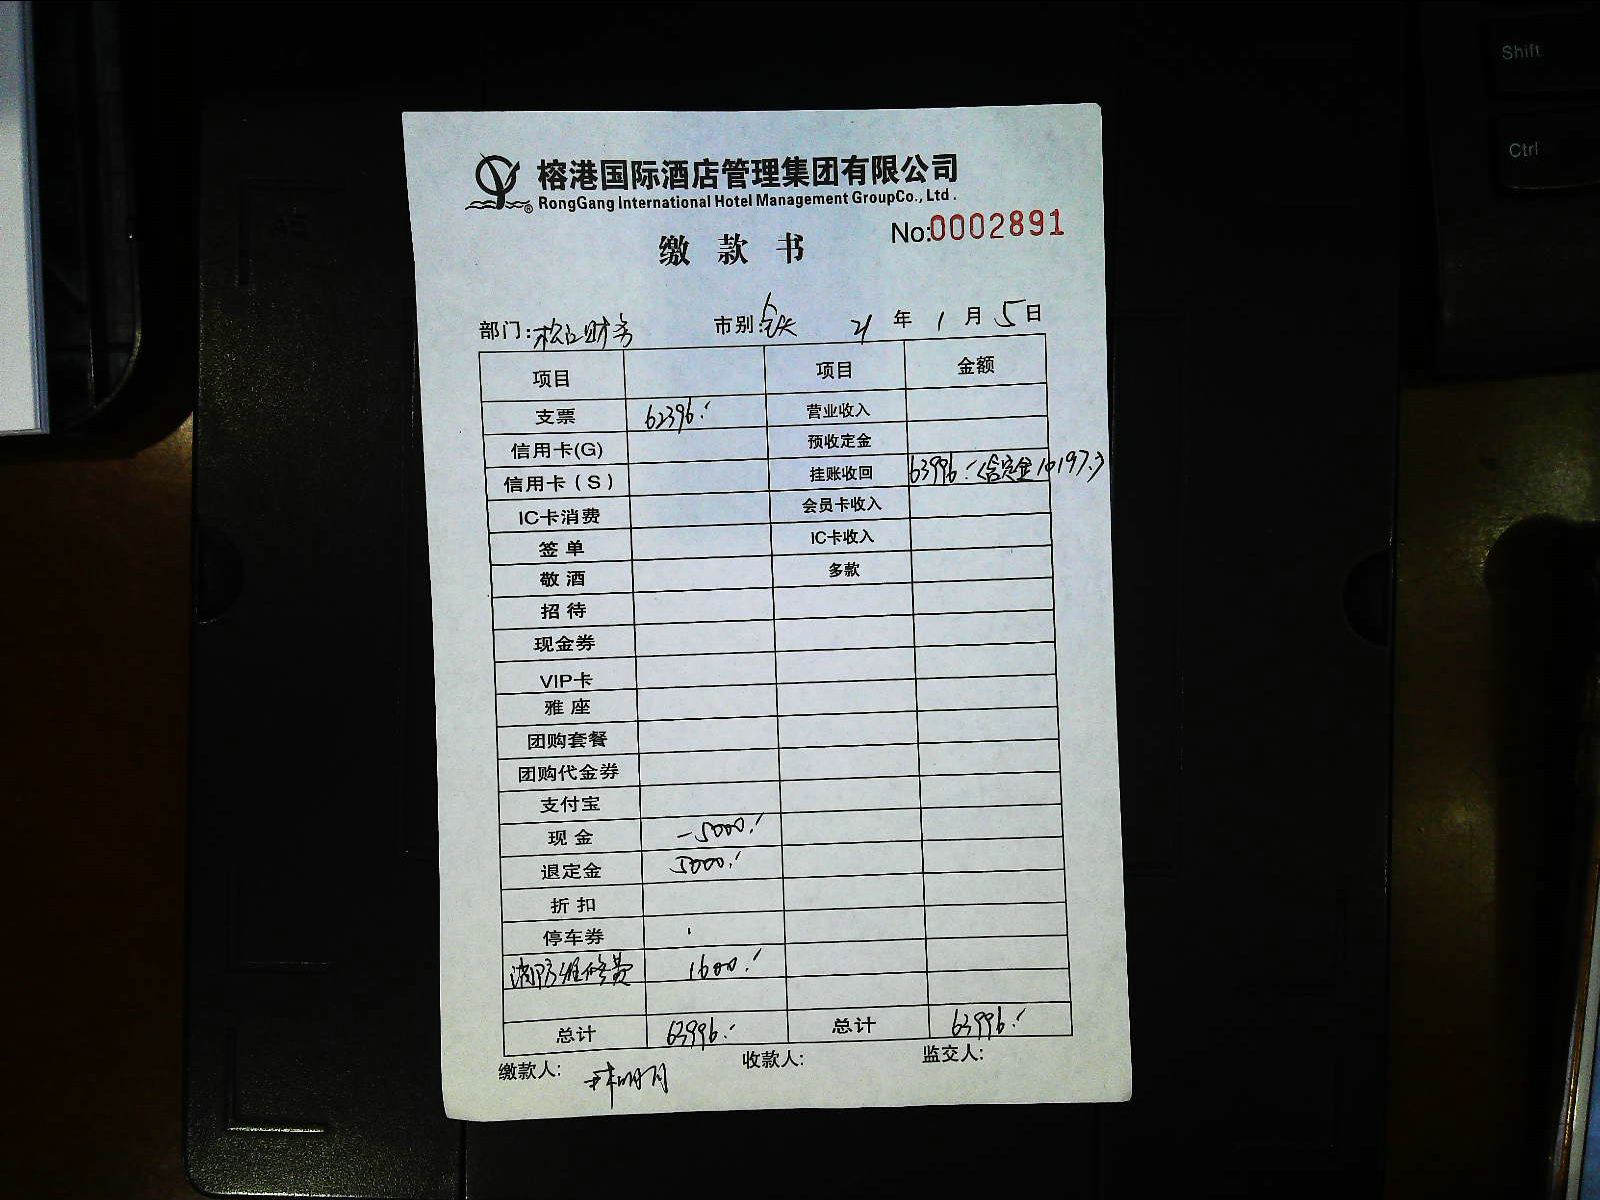 榕港国际酒店管理集团有限公司
RongGang International Hotel Management GroupCo., Ltd .
No:0002891
缴 款 书
部门:松江财务 市别: 21 年 1 月 5 日
项目 项目 金额
支票 62396.- 营业收入
信用卡(G) 预收定金
信用卡(S) 挂账收回 63996.-(含定金10197.-)
IC卡消费 会员卡收入
签 单 IC卡收入
敬 酒 多款
招 待
现金券
VIP卡
雅 座
团购套餐
团购代金券
支付宝
现 金 -5000.-
退定金 5000.-
折 扣
停车券
消防维修费 1600.-
总计 63996.- 总计 63996.-
缴款人: 收款人: 监交人:
Shift
Ctrl
A5